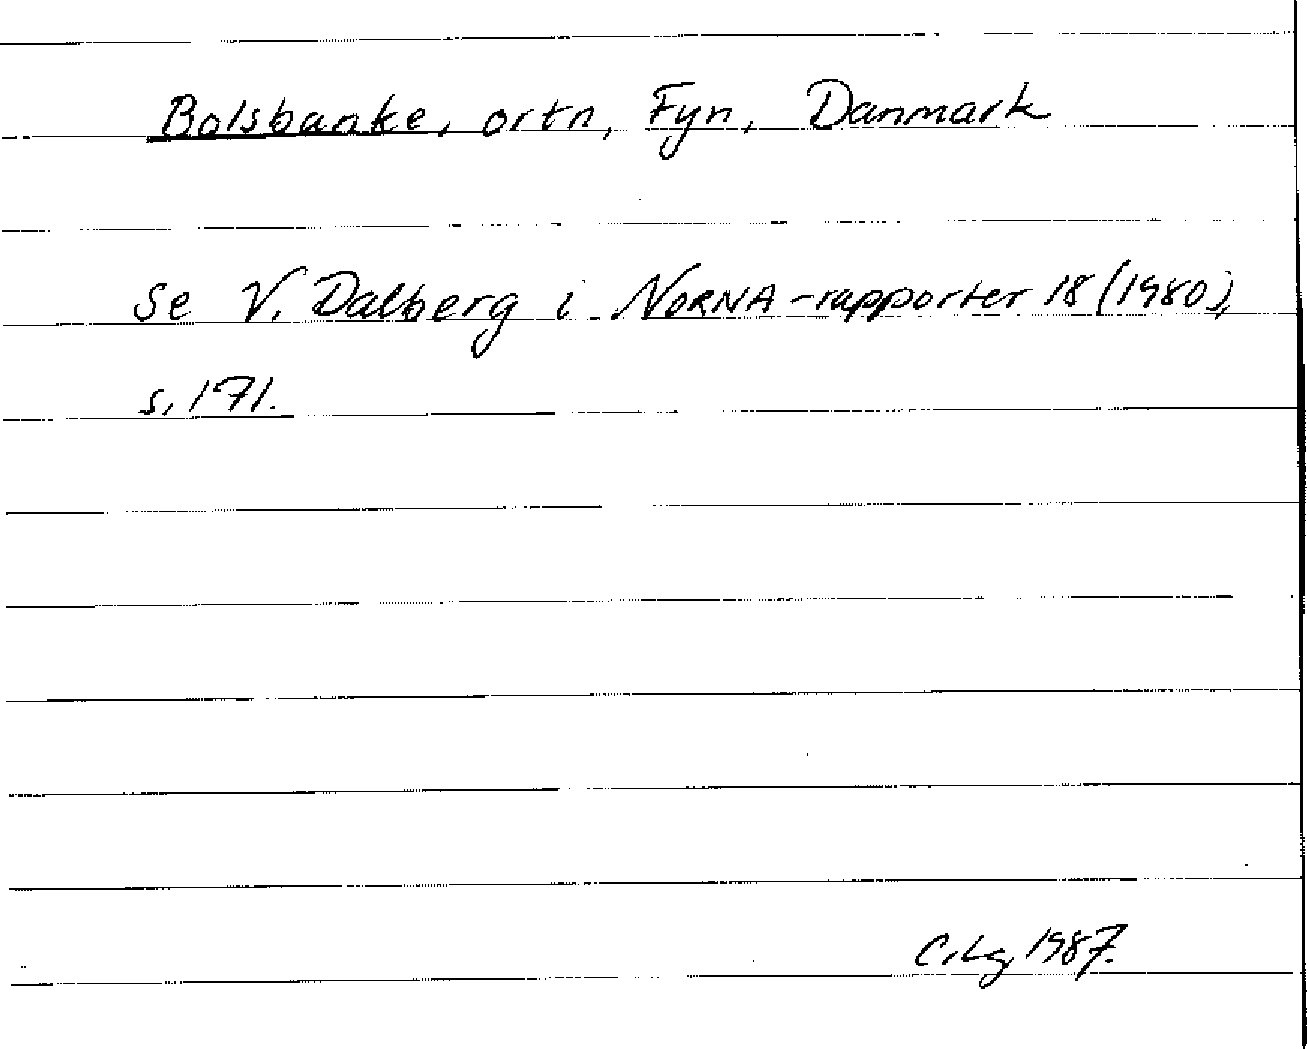 Bolsbanke, ortn, Fyn, Danmark
Se V. Dalberg i NORNA-rapporter 18 (1980),
s. 171.
C. Lg 1987.